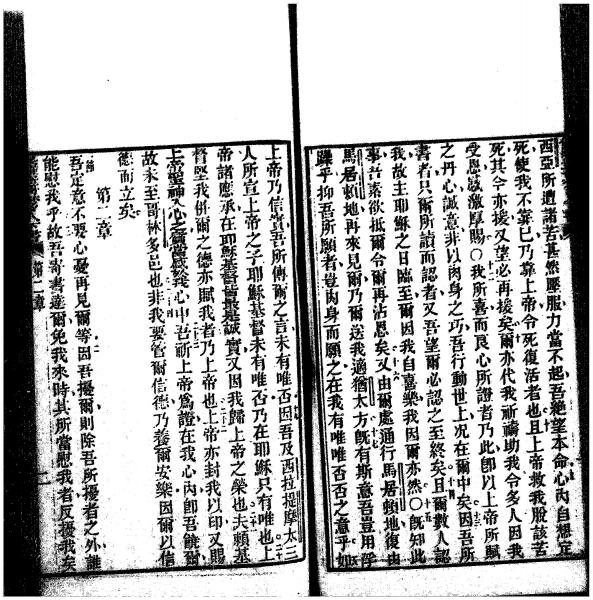 西亞所遭諸苦甚然壓服力當不起吾絕望本命心內自想定
死使我不靠已乃靠上帝令死復活者也且上帝救我脫該苦
死其今亦援又望必再援矣爾亦代我祈禱助我令多人因我
受恩感激厚賜〇我所喜而良心所證者乃此卽以上帝所賦
之丹心誠意非以肉身之巧吾行動世上况在爾中矣因吾所
書者只爾所讀而認者又吾望爾必認之至終矣且爾數人認
我故主耶穌之日臨至爾因我自嘉樂我因爾亦然〇旣知此
事吾素欲抵爾令爾再沾恩矣又由爾處通行馬居賴地復由
馬居賴地再來見爾乃爾送我適猶太方旣有斯意吾豈用浮
躁乎抑吾所願者豈肉身而願之在我有唯唯否否之意乎如
上帝乃信實吾所傳爾之言未有唯否因吾及西拉提摩太三
人所宣上帝之子耶穌基督未有唯否乃在耶穌只有唯也上
帝諸應承在耶穌基督皆是誠實又因我歸上帝之榮也夫賴基
督堅我併爾之德亦賦我者乃上帝也上帝亦封我以印又賜
上帝聖神入心之感應於我心中吾祈上帝爲證在我心內卽吾饒爾
故未至哥林多邑也非我要管爾信德乃養爾安樂因爾以信
德而立矣
第二章
吾定意不要心憂再見爾等因吾擾爾則除吾所擾者之外誰
能慰我乎故吾寄書達爾免我來時其所當慰我者反擾我矣
第二章